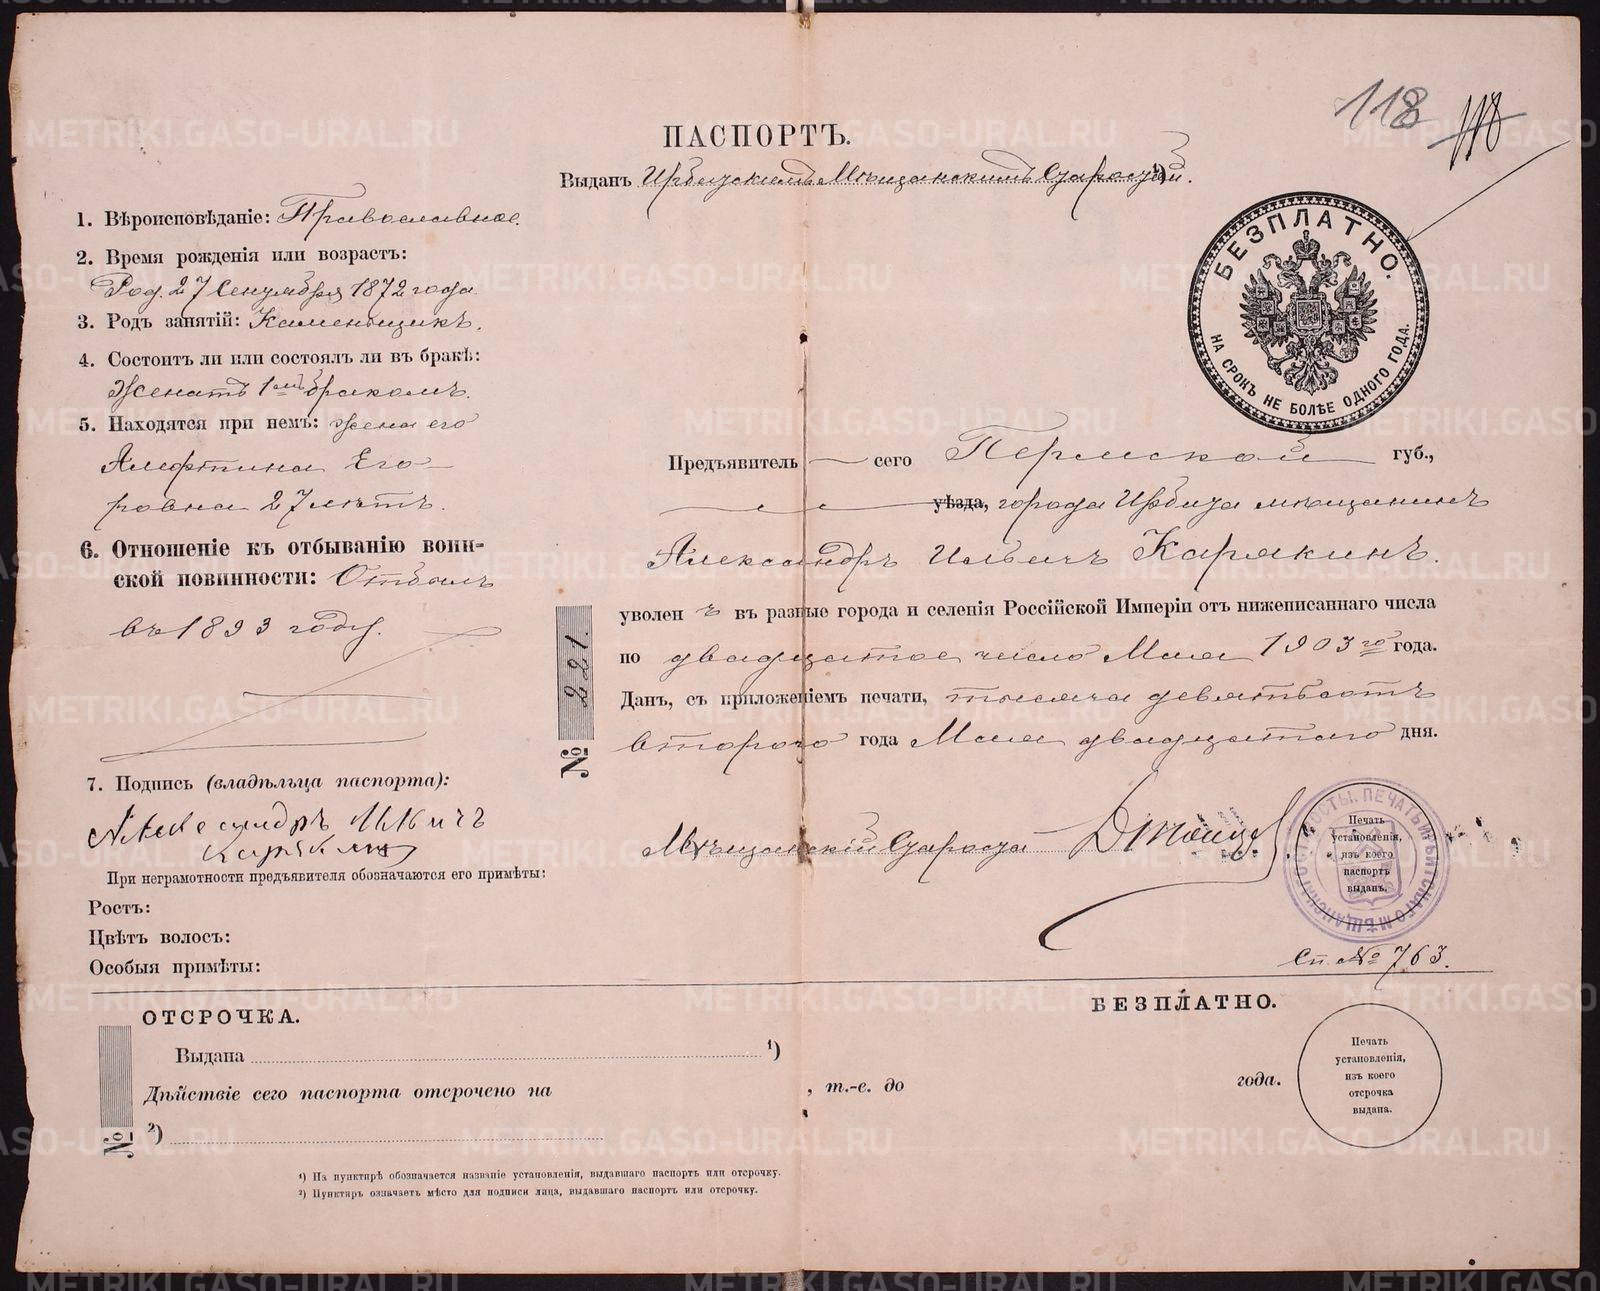 118 118
ПАСПОРТЪ.
Выданъ Ирбитскимъ Мѣщанскимъ Старостой ¹).
1. Вѣроисповѣданіе: Православное.
2. Время рожденія или возрастъ:
Род. 27 Сентября 1872 года
3. Родъ занятій: Каменьщикъ.
4. Состоитъ ли или состоялъ ли въ бракѣ:
Женатъ 1мъ бракомъ.
5. Находятся при немъ: жена его
Алефтина Его-
ровна 27 лѣтъ.
6. Отношеніе къ отбыванію воин-
ской повинности: Отбылъ
въ 1893 году.
7. Подпись (владѣльца паспорта):
Александръ Ильичъ
Карякинъ
При неграмотности предъявителя обозначаются его примѣты:
Ростъ:
Цвѣтъ волосъ:
Особыя примѣты:
БЕЗПЛАТНО.
НА СРОКЪ НЕ БОЛѢЕ ОДНОГО ГОДА.
Предъявитель сего Пермской губ.,
уѣзда, города Ирбита мѣщанинъ
Александръ Ильичъ Карякинъ.
уволенъ въ разные города и селенія Россійской Имперіи отъ нижеписаннаго числа
по двадцатое число Мая 1903го года.
Данъ, съ приложеніемъ печати, тысяча девятьсотъ
второго года Мая двадцатаго дня.
№ 221.
Мѣщанскій Староста
Печать
установленія,
изъ коего
паспортъ
выданъ.
Сп. № 763.
ОТСРОЧКА.
БЕЗПЛАТНО.
Выдана ¹)
Дѣйствіе сего паспорта отсрочено на , т.-е. до года.
№ ²)
Печать
установленія,
изъ коего
отсрочка
выдана.
¹) На пунктирѣ обозначается названіе установленія, выдавшаго паспортъ или отсрочку.
²) Пунктиръ означаетъ мѣсто для подписи лица, выдавшаго паспортъ или отсрочку.
METRIKI.GASO-URAL.RU